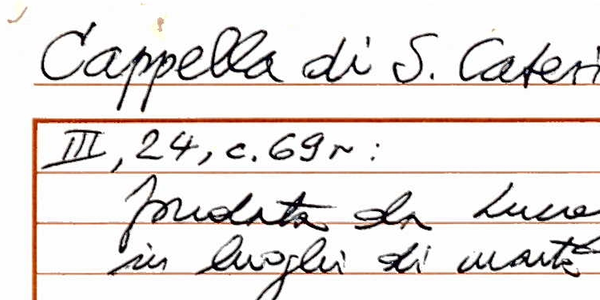 Cappella di S. Cateri
III, 24, c. 69r:
fondata da Lucre
in luoghi di